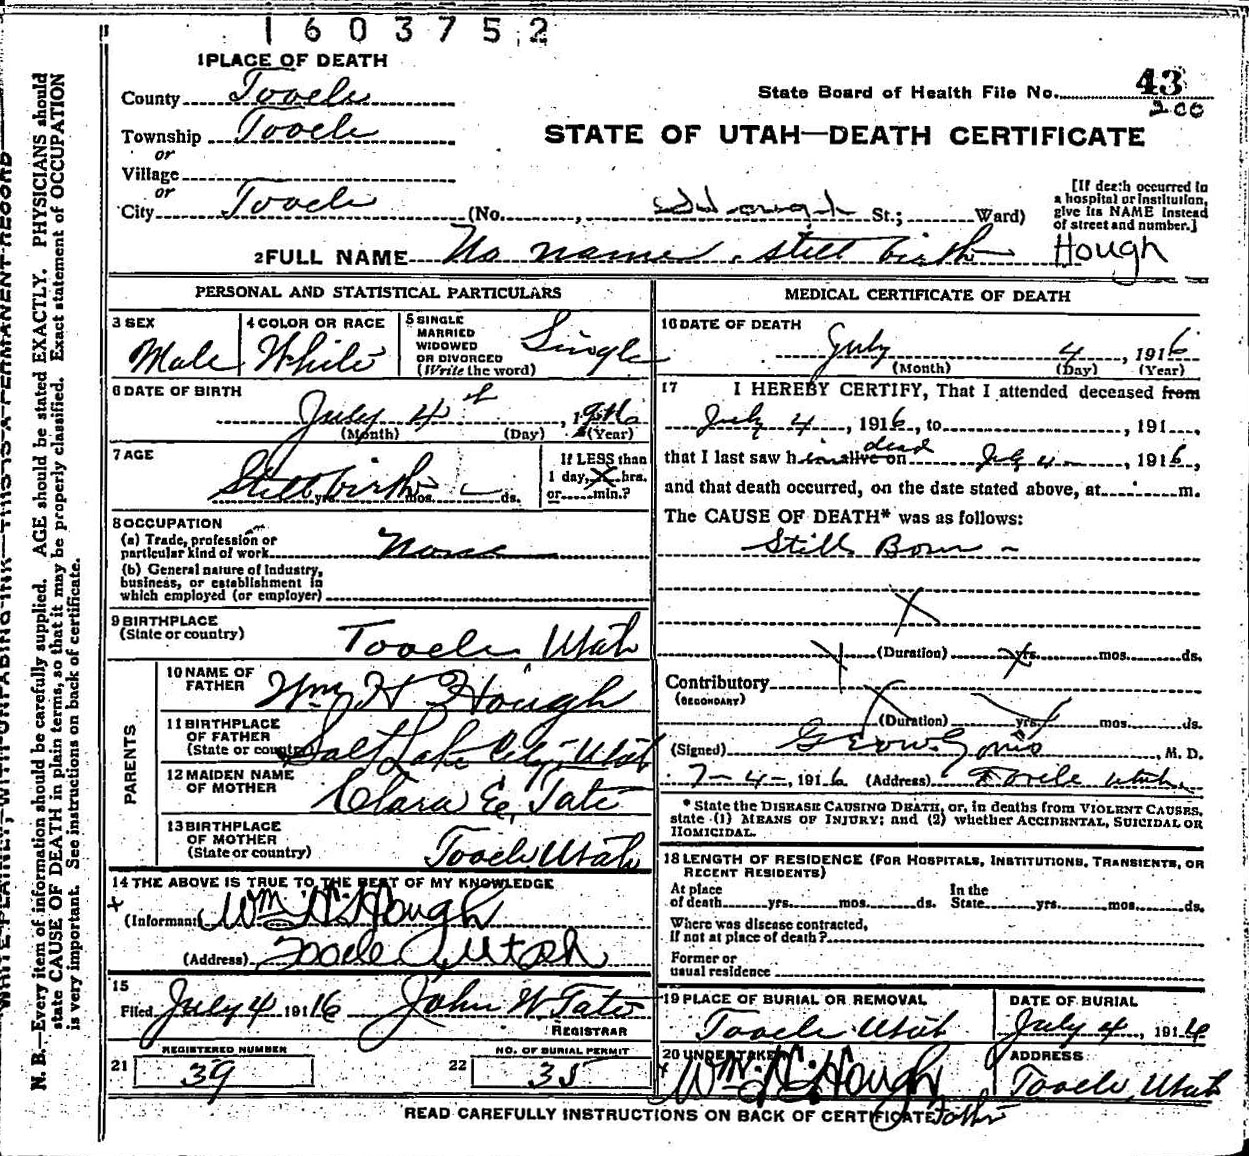 1603752
1 PLACE OF DEATH
County Tooele
State Board of Health File No. 43
200
Township Tooele
STATE OF UTAH—DEATH CERTIFICATE
or
Village
or
City Tooele (No. , St.; Ward)
[If death occurred in
a hospital or institution,
give its NAME instead
of street and number.]
2 FULL NAME No name. still birth Hough
PERSONAL AND STATISTICAL PARTICULARS
3 SEX
Male
4 COLOR OR RACE
White
5 SINGLE
MARRIED
WIDOWED
OR DIVORCED
(Write the word)
Single
6 DATE OF BIRTH
July 4th, 1916
(Month) (Day) (Year)
7 AGE
Still birth yrs. mos. ds.
If LESS than
1 day, hrs.
or min.?
8 OCCUPATION
(a) Trade, profession or
particular kind of work None
(b) General nature of Industry,
business, or establishment in
which employed (or employer)
9 BIRTHPLACE
(State or country)
Tooele Utah
PARENTS
10 NAME OF
FATHER
Wm H Hough
11 BIRTHPLACE
OF FATHER
(State or country)
Salt Lake City, Utah
12 MAIDEN NAME
OF MOTHER
Clara E. Tate
13 BIRTHPLACE
OF MOTHER
(State or country)
Tooele Utah
14 THE ABOVE IS TRUE TO THE BEST OF MY KNOWLEDGE
(Informant) Wm. H. Hough
(Address) Tooele Utah
15
Filed July 4 1916 John W. Tate
REGISTRAR
21 REGISTERED NUMBER
39
22 NO. OF BURIAL PERMIT
35
MEDICAL CERTIFICATE OF DEATH
16 DATE OF DEATH
July 4, 1916
(Month) (Day) (Year)
17 I HEREBY CERTIFY, That I attended deceased from
July 4, 1916, to , 191 ,
that I last saw him alive on dead July 4, 1916,
and that death occurred, on the date stated above, at m.
The CAUSE OF DEATH* was as follows:
Still Born
(Duration) yrs. mos. ds.
Contributory
(SECONDARY)
(Duration) yrs. mos. ds.
(Signed) Geo. W. , M. D.
7-4-, 1916 (Address) Tooele Utah
* State the DISEASE CAUSING DEATH, or, in deaths from VIOLENT CAUSES,
state (1) MEANS OF INJURY; and (2) whether ACCIDENTAL, SUICIDAL OR
HOMICIDAL.
18 LENGTH OF RESIDENCE (FOR HOSPITALS, INSTITUTIONS, TRANSIENTS, OR
RECENT RESIDENTS)
At place
of death yrs. mos. ds.
In the
State yrs. mos. ds.
Where was disease contracted,
If not at place of death?
Former or
usual residence
19 PLACE OF BURIAL OR REMOVAL
Tooele Utah
DATE OF BURIAL
July 4, 1916
20 UNDERTAKER
Wm. H. Hough
Father
ADDRESS
Tooele, Utah
READ CAREFULLY INSTRUCTIONS ON BACK OF CERTIFICATE
WRITE PLAINLY, WITH UNFADING INK—THIS IS A PERMANENT RECORD
N. B.—Every item of information should be carefully supplied. AGE should be stated EXACTLY. PHYSICIANS should
state CAUSE OF DEATH in plain terms, so that it may be properly classified. Exact statement of OCCUPATION
is very important. See instructions on back of certificate.